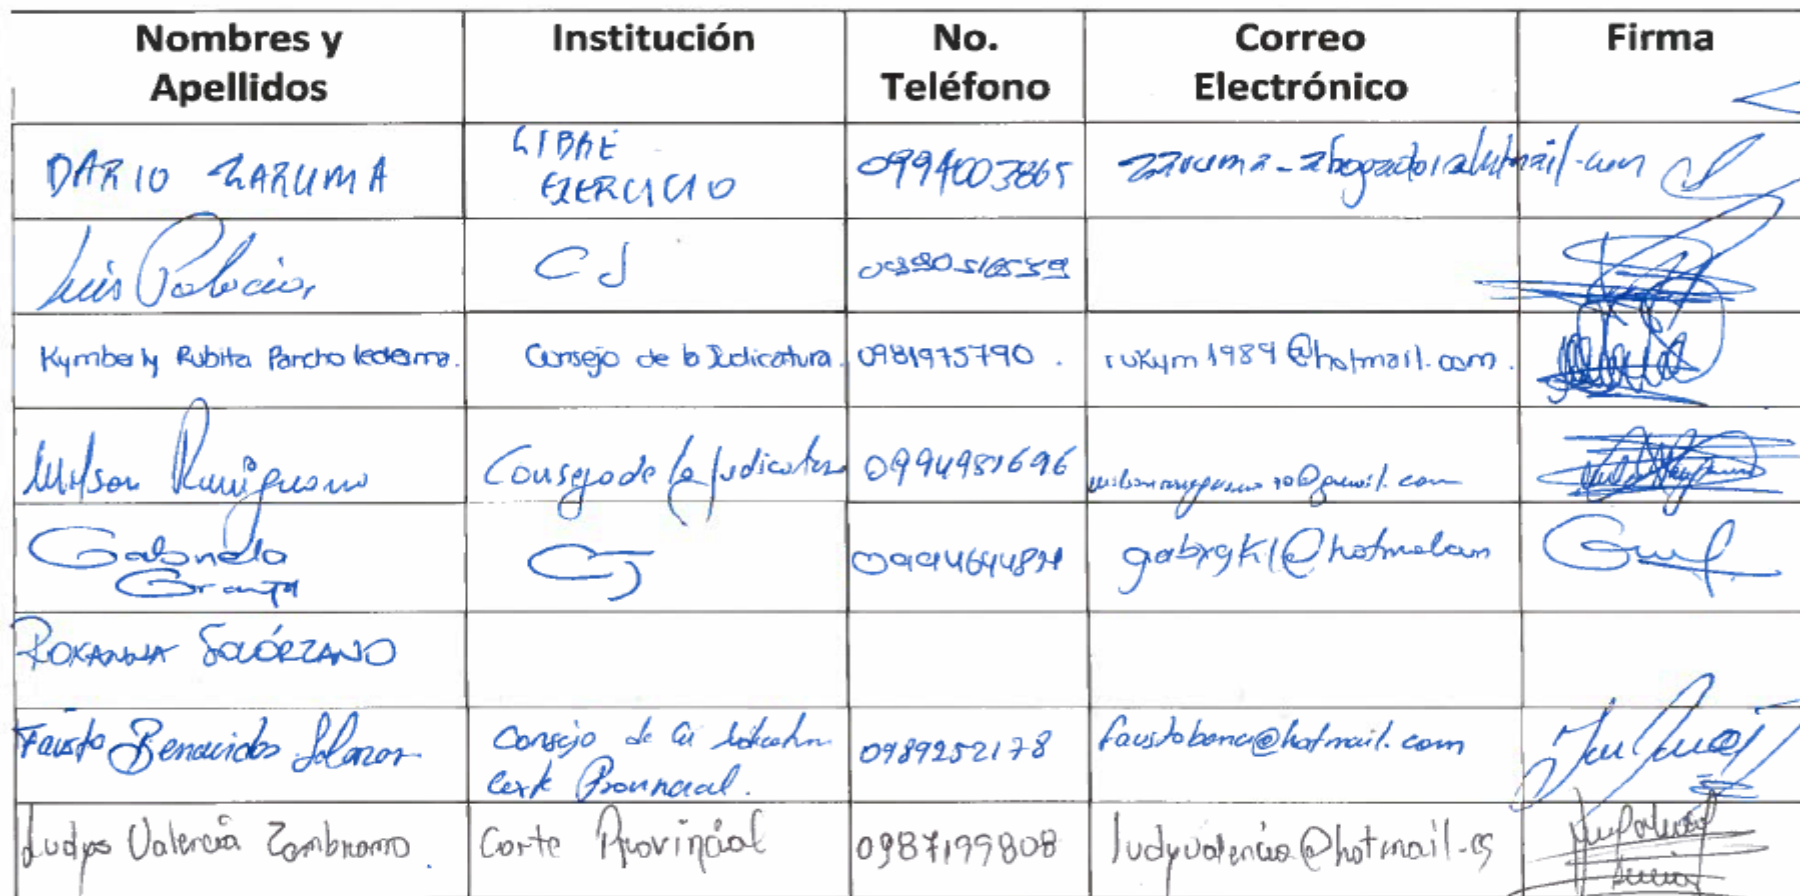 Nombres y Apellidos Institución No. Teléfono Correo Electrónico Firma
DARIO ZARUMA LIBRE EJERCICIO 0994003865
Luis Palacios CJ
Kymberly Rubita Pancho Ledesma. Consejo de la Judicatura. 0981975790. rukym1989@hotmail.com.
Wilson Rumiguano Consejo de la Judicatura 0994981696
Gabriela Granja CJ
ROXANNA SOLÓRZANO
Fausto Benavides Salazar Consejo de la Judicatura Corte Provincial. 0989252178 faustobena@hotmail.com
Ludys Valencia Zambrano. Corte Provincial 0987199808 ludyvalencia@hotmail.es